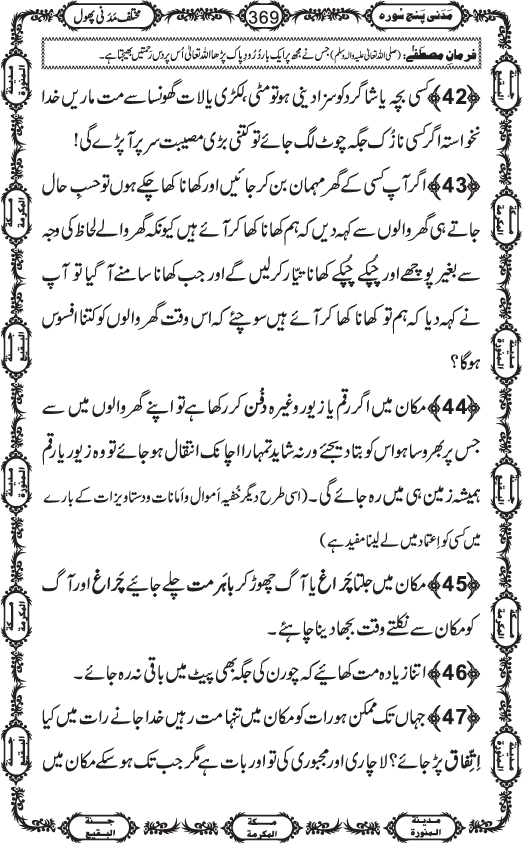 مَدَنی پنج سُورہ
369
مختلف مَدَنی پھول
فرمانِ مصطَفٰے: (صلی اللہ تعالیٰ علیہ والہ وسلم) جس نے مجھ پر ایک بار دُرُودِ پاک پڑھا اللہ تعالیٰ اُس پر دس رحمتیں بھیجتا ہے۔
﴿42﴾ کسی بچہ یا شاگرد کو سزا دینی ہو تو مٹی، لکڑی یا لات گھونسا سے مت ماریں خدا
نخواستہ اگر کسی نازُک جگہ چوٹ لگ جائے تو کتنی بڑی مصیبت سر پر آپڑے گی!
﴿43﴾ اگر آپ کسی کے گھر مہمان بن کر جائیں اور کھانا کھا چکے ہوں تو حسبِ حال
جاتے ہی گھر والوں سے کہہ دیں کہ ہم کھانا کھا کر آئے ہیں کیونکہ گھر والے لحاظ کی وجہ
سے بغیر پوچھے اور چُپکے چُپکے کھانا تیّار کرلیں گے اور جب کھانا سامنے آگیا تو آپ
نے کہہ دیا کہ ہم تو کھانا کھا کر آئے ہیں سوچئے کہ اس وقت گھر والوں کو کتنا افسوس
ہوگا؟
﴿44﴾ مکان میں اگر رقم یا زیور وغیرہ دَفْن کر رکھا ہے تو اپنے گھر والوں میں سے
جس پر بھروسا ہو اس کو بتا دیجئے ورنہ شاید تمہارا اچانک انتقال ہو جائے تو وہ زیور یا رقم
ہمیشہ زمین ہی میں رہ جائے گی۔ (اسی طرح دیگر خُفیہ اَموال و اَمانات و دستاویزات کے بارے
میں کسی کو اِعتماد میں لے لینا مفید ہے)
﴿45﴾ مکان میں جلتا چَراغ یا آگ چھوڑ کر باہَر مت چلے جائیے چَراغ اور آگ
کو مکان سے نکلتے وقت بجھا دینا چاہئے۔
﴿46﴾ اتنا زیادہ مت کھائیے کہ چورن کی جگہ بھی پیٹ میں باقی نہ رہ جائے۔
﴿47﴾ جہاں تک ممکن ہو رات کو مکان میں تنہا مت رہیں خدا جانے رات میں کیا
اِتِّفاق پڑ جائے؟ لاچاری اور مجبوری کی تو اور بات ہے مگر جب تک ہوسکے مکان میں